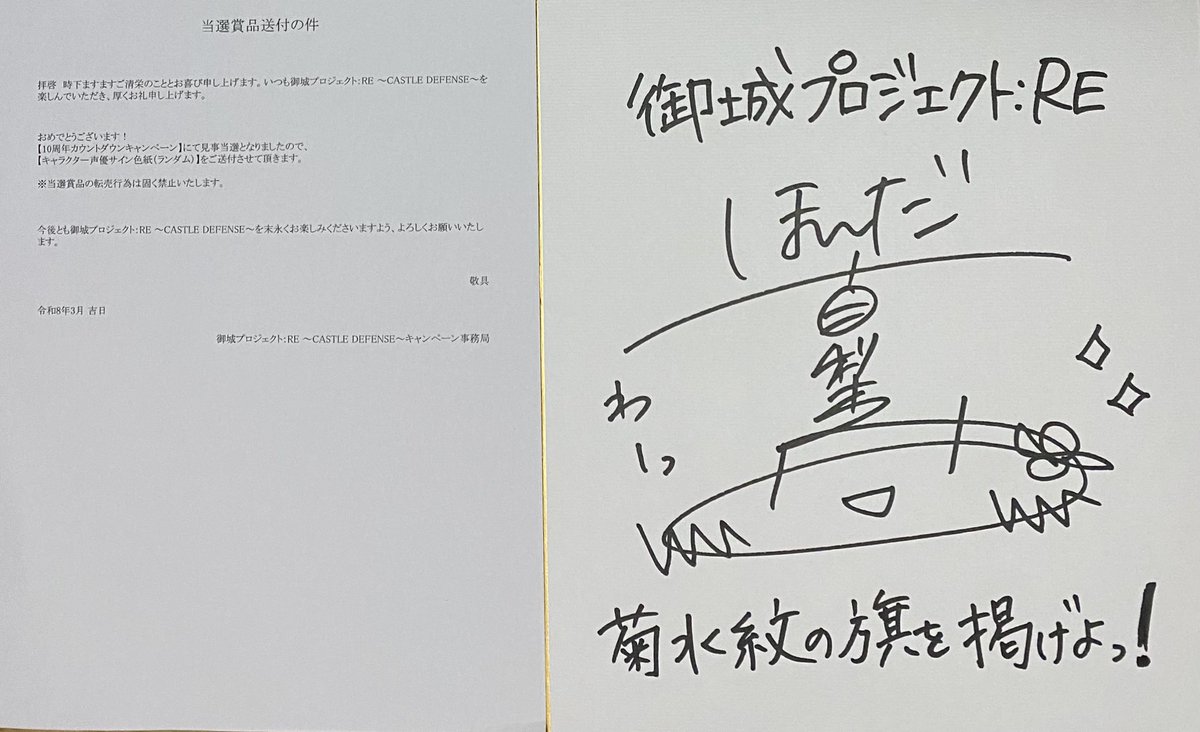 当選賞品送付の件
拝啓 時下ますますご清栄のこととお喜び申し上げます。いつも御城プロジェクト:RE ~CASTLE DEFENSE~を
楽しんでいただき、厚くお礼申し上げます。
おめでとうございます！
【10周年カウントダウンキャンペーン】にて見事当選となりましたので、
【キャラクター声優サイン色紙(ランダム)】をご送付させて頂きます。
※当選賞品の転売行為は固く禁止いたします。
今後とも御城プロジェクト:RE ~CASTLE DEFENSE~を末永くお楽しみくださいますよう、よろしくお願いいたし
ます。
敬具
令和8年3月 吉日
御城プロジェクト:RE ~CASTLE DEFENSE~キャンペーン事務局
御城プロジェクト:RE
わーっ
菊水紋の旗を掲げよっ!